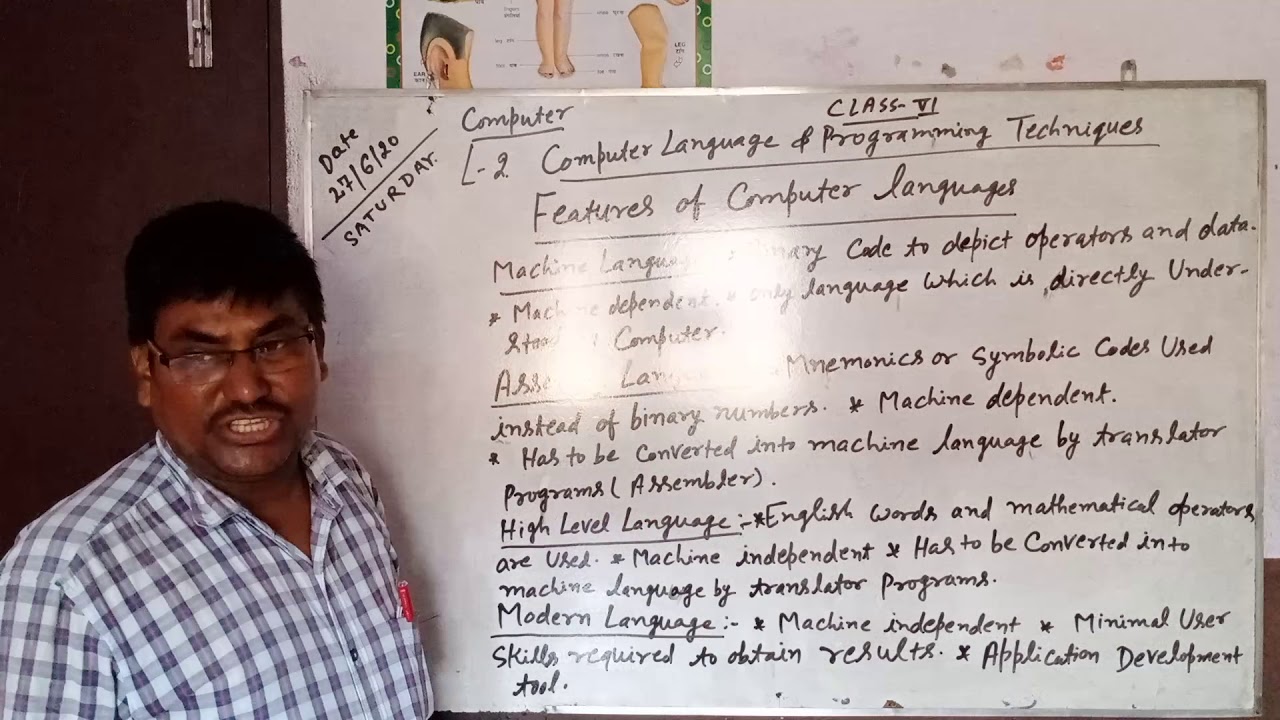 EAR
LEG
Date
27/6/20
SATURDAY.
Computer
CLASS-VI
L-2 Computer Language & Programming Techniques
Features of Computer languages
Machine Language Binary Code to depict operators and data.
* Machine dependent. * only language which is directly Under-
stood Computer.
Language Mnemonics or Symbolic Codes Used
instead of binary numbers. * Machine dependent.
* Has to be Converted into machine language by translator
Programs (Assembler).
High Level Language :- * English words and mathematical operators
are Used. * Machine independent * Has to be Converted into
machine language by translator Programs.
Modern Language :- * Machine independent * Minimal User
Skills required to obtain results. * Application Development
tool.